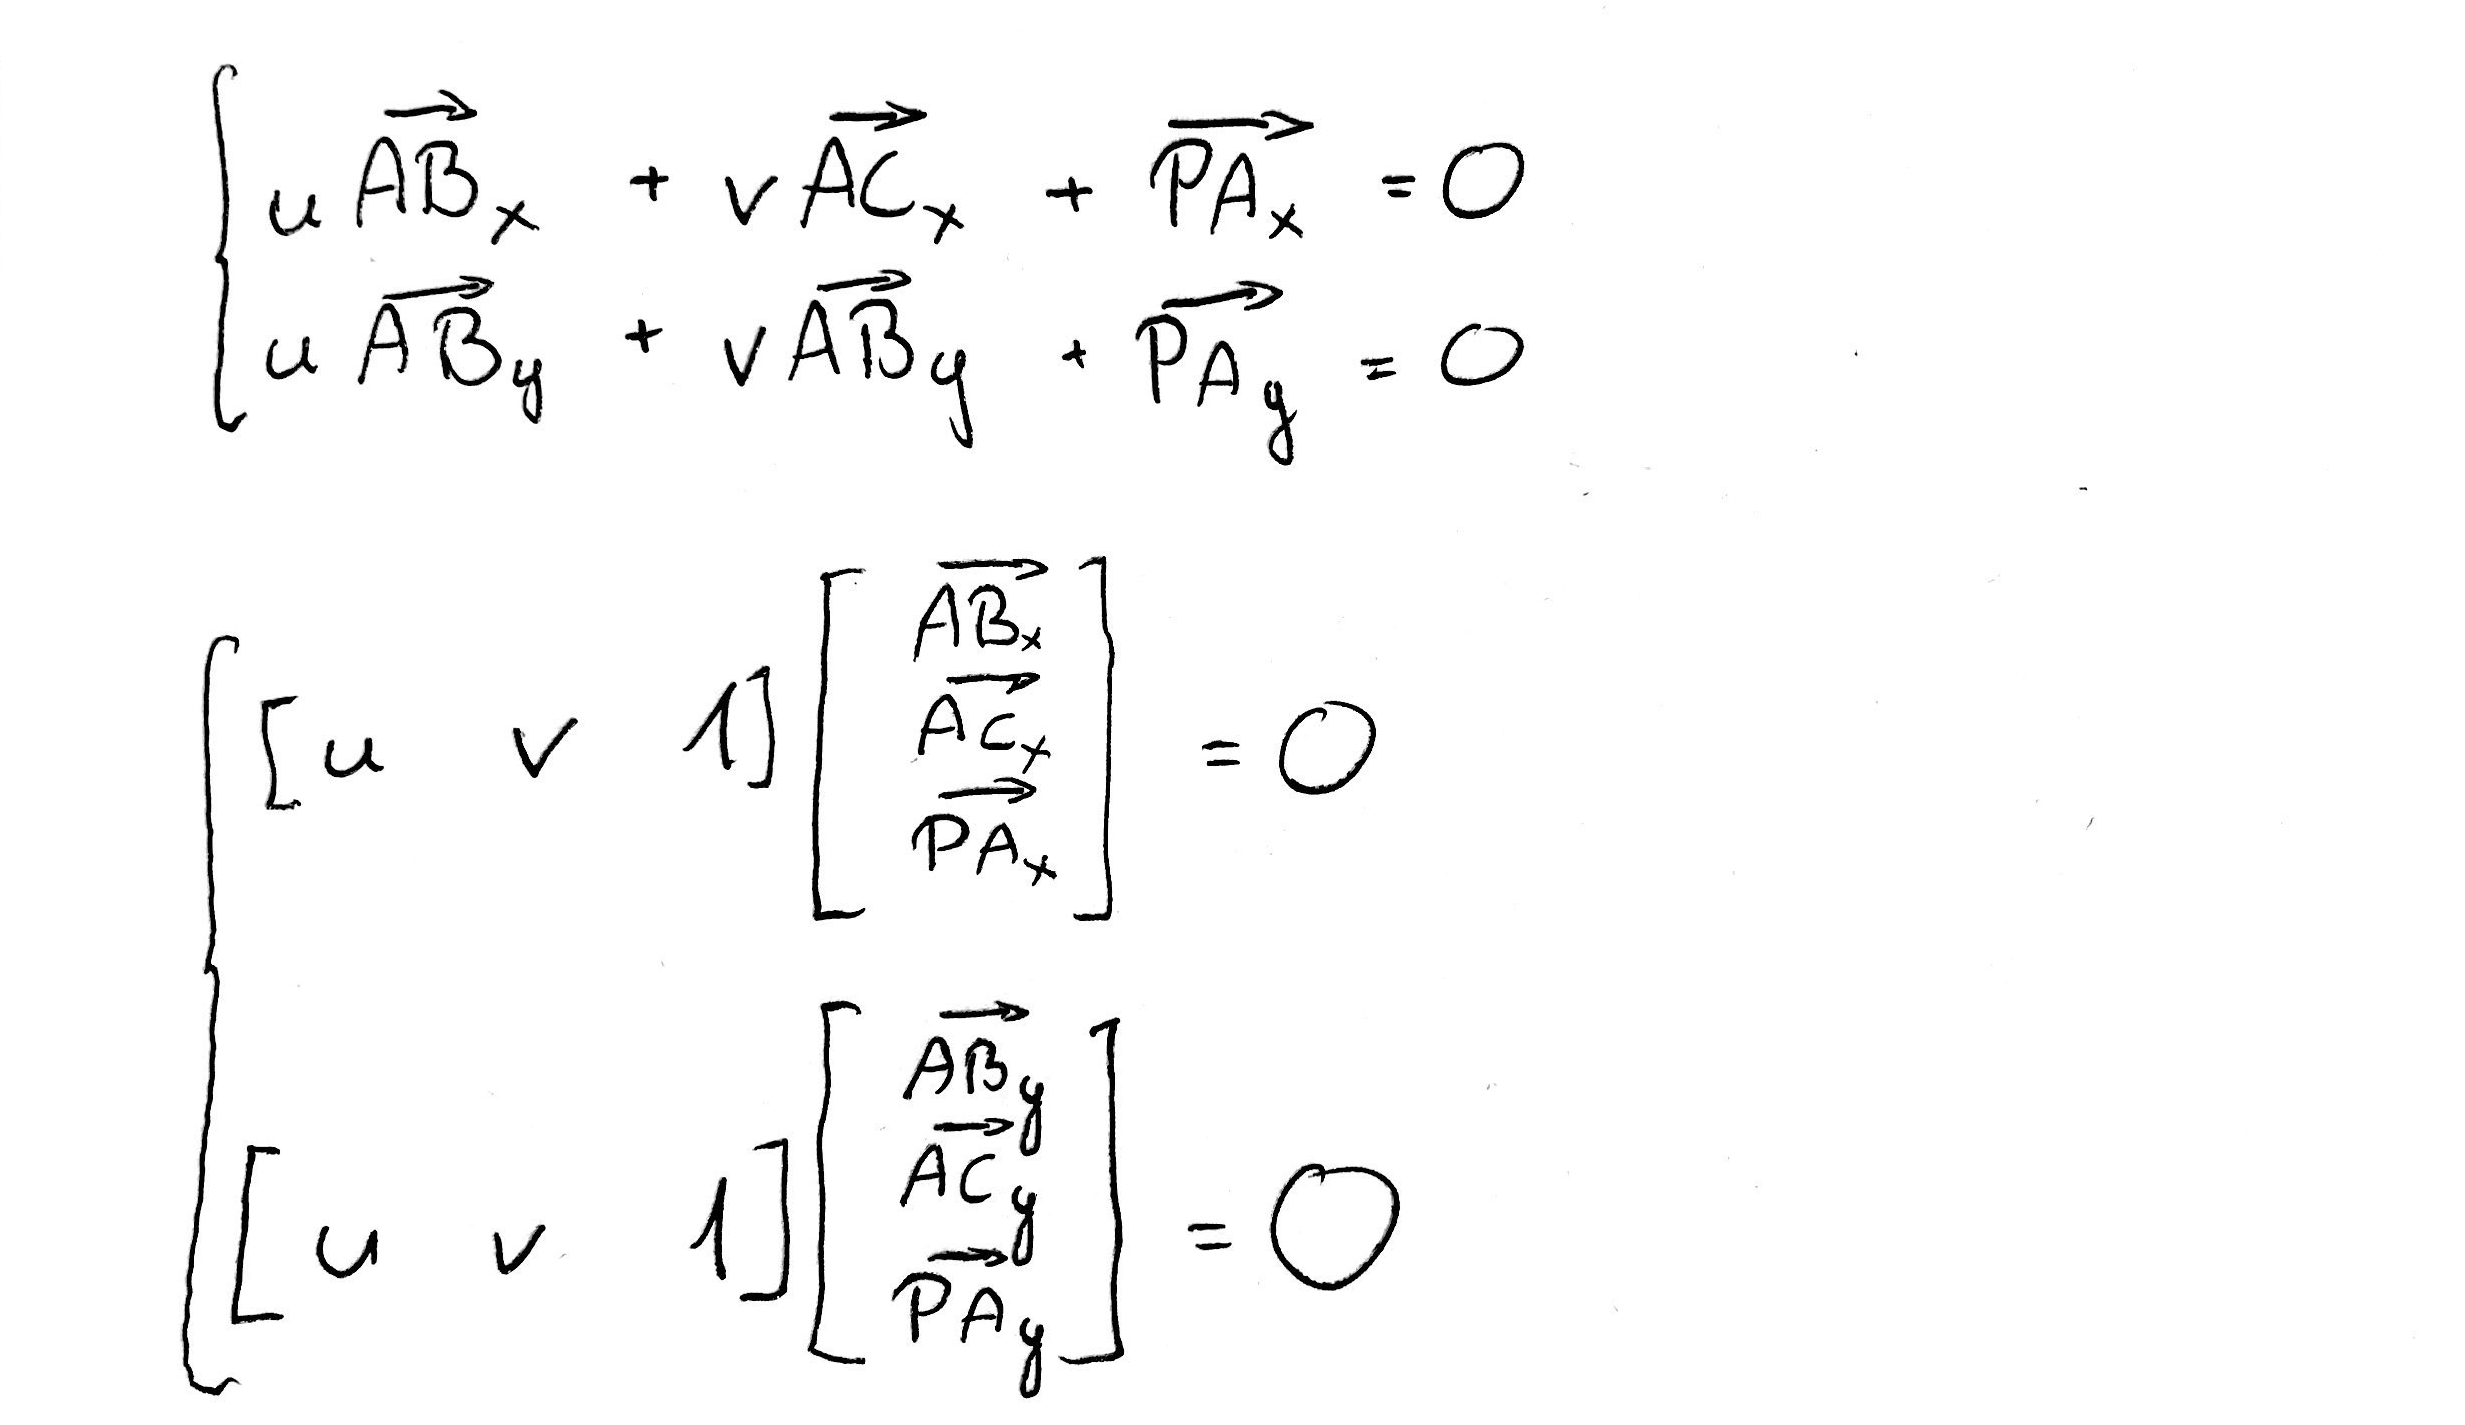 u \overrightarrow{AB}_x + v \overrightarrow{AC}_x + \overrightarrow{PA}_x = 0
u \overrightarrow{AB}_y + v \overrightarrow{AB}_y + \overrightarrow{PA}_y = 0
[u v 1] [\overrightarrow{AB}_x \overrightarrow{AC}_x \overrightarrow{PA}_x] = 0
[u v 1] [\overrightarrow{AB}_y \overrightarrow{AC}_y \overrightarrow{PA}_y] = 0